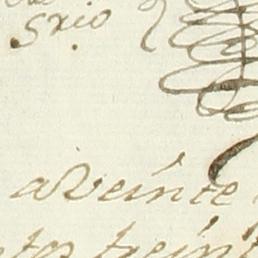 Srio
aVeinte
ntos treint